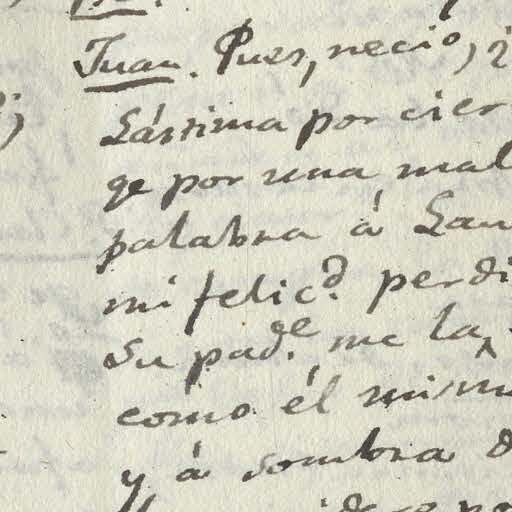 Juan. Pues, necio, ¿
Lástima por cier
qe por una mal
palabra á Lau
mi felicd. perdi
Su padre. me la
como él mism
y á sombra d